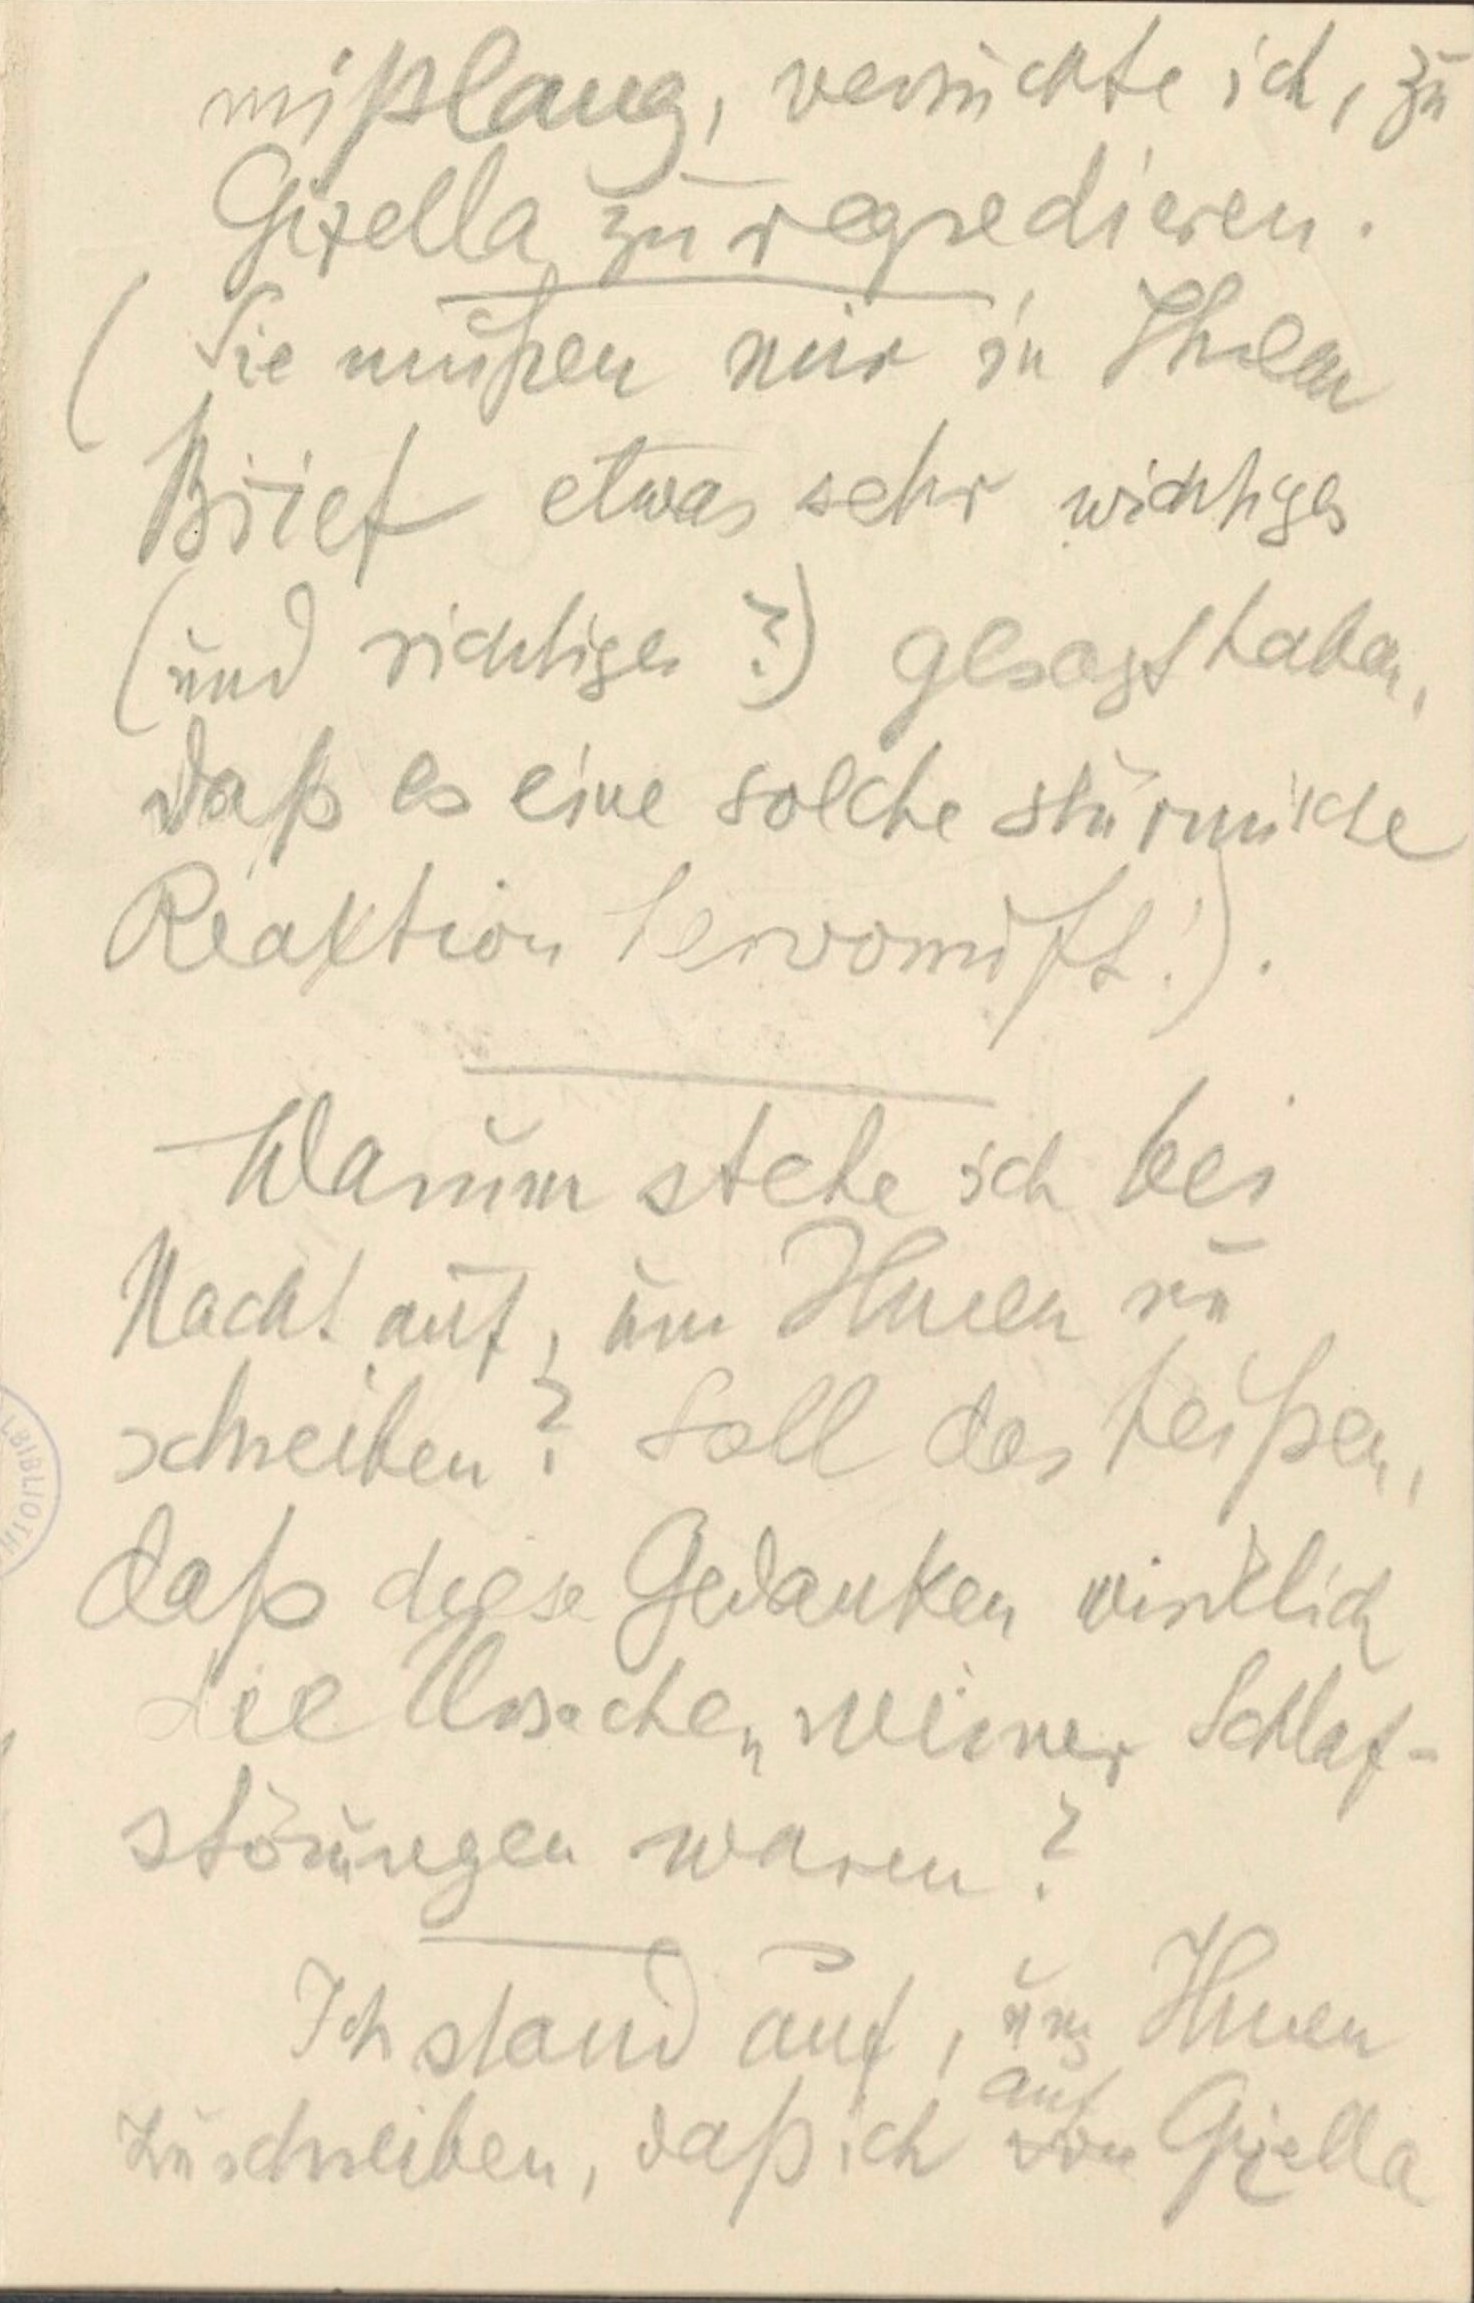 mißlang, versuchte ich, zu
Gizella zu regredieren.
(Sie mußen mir in Ihrem
Brief etwas sehr wichtiges
(und richtiges?) gesagt haben,
daß es eine solche stürmische
Reaktion hervorruft!).
Warum stehe ich bei
Nacht auf, um Ihnen zu
schreiben? Soll das heißen,
daß diese Gedanken wirklich
die Ursachen meiner Schlaf-
störungen waren?
Ich stand auf, um Ihnen
auf
zu schreiben, daß ich von Gizella
BIBLIOTH